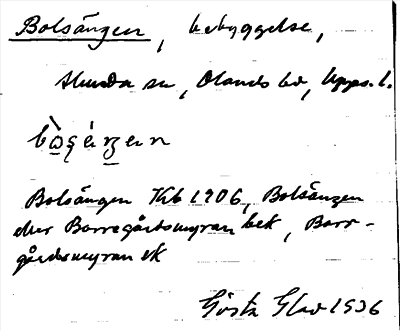 Bolsängen, bebyggelse,
Almunda sn, Olands hd, Upps. l.
Bolsängen Kb 1906, Bolsängen
eller Borregårdsmyran bek, Borr-
gårdsmyran ek
Gösta Glad 1936